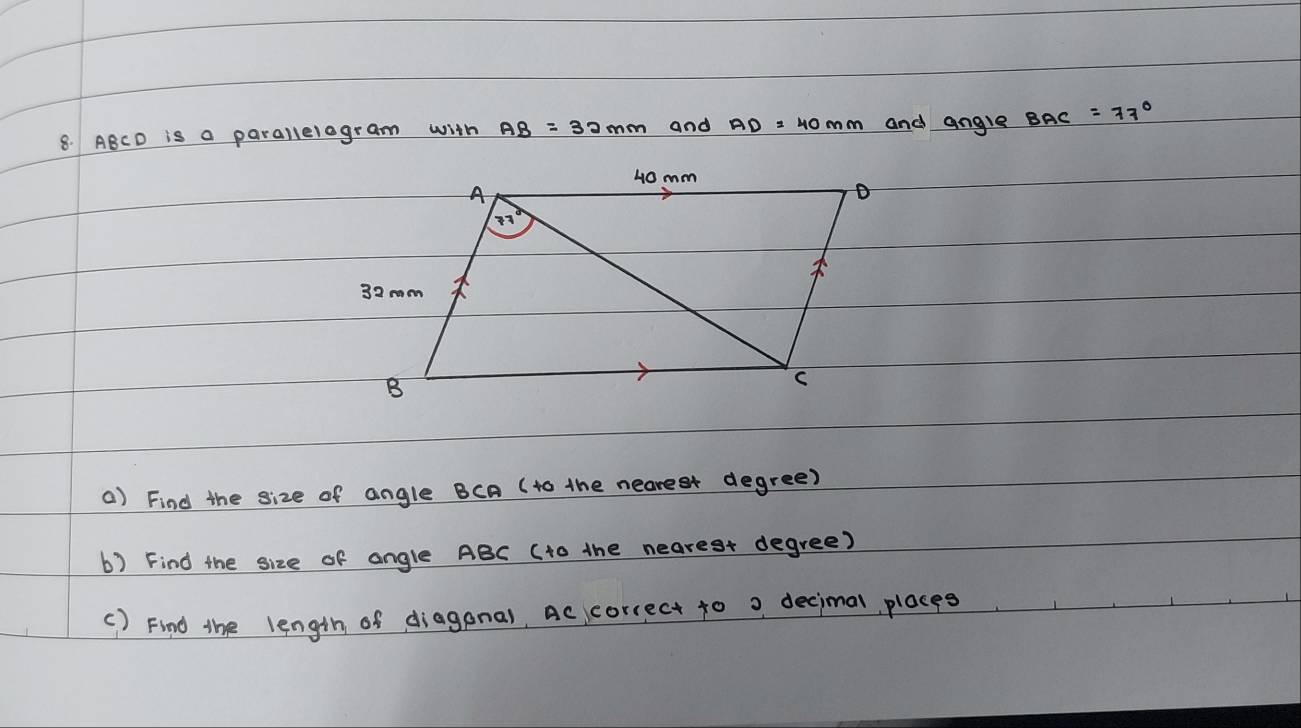 8. ABCD is a parallelogram with AB = 32mm and AD = 40mm and angle BAC = 77°
40 mm
A D
77°
32mm
B C
a) Find the size of angle BCA (to the nearest degree)
b) Find the size of angle ABC (to the nearest degree)
c) Find the length of diagonal AC, correct to 2 decimal places